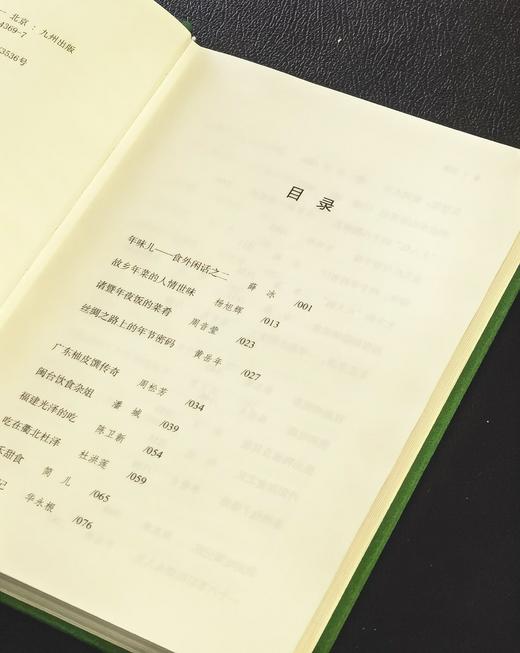 — 北京：九州出版
4369-7
3536号
目录
年味儿——食外闲话之二 薛冰 /001
故乡年菜的人情世味 杨旭辉 /013
诸暨年夜饭的菜肴 周音莹 /023
丝绸之路上的年节密码 黄岳年 /027
广东柚皮馔传奇 周松芳 /034
闽台饮食杂俎 潘城 /039
福建光泽的吃 陈卫新 /054
吃在衢北杜泽 杜洪莲 /059
甜食 简儿 /065
记 华永根 /076